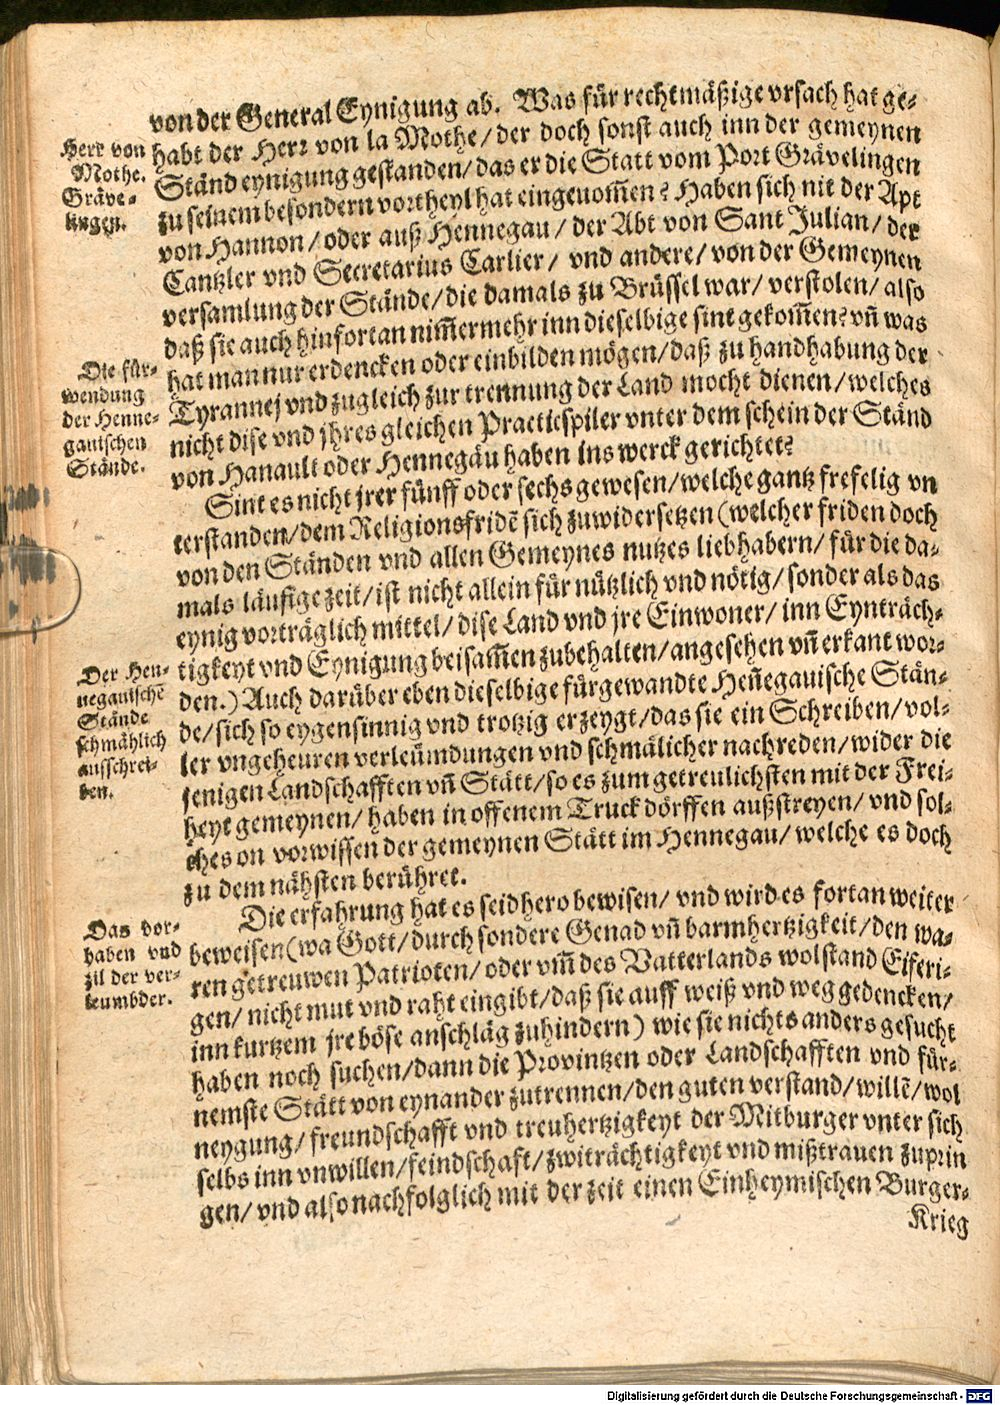 von der General Eynigung ab. Was für rechtmäßige vrsach hat ge-
habt der Herr von la Mothe/der doch sonst auch inn der gemeynen
Ständ eynigung gestanden/das er die Statt vom Port Grävelingen
zu seinem besondern vortheyl hat eingenom̃en? Haben sich nit der Apt
von Hannon/oder auß Hennegau/der Abt von Sant Julian/der
Cantzler vnd Secretarius Carlier/ vnd andere/von der Gemeynen
versamlung der Stände/die damals zu Brüssel war/ verstolen/also
daß sie auch hinfortan nim̃ermehr inn dieselbige sint gekom̃en? vñ was
hat man nur erdencken oder einbilden mögen/daß zu handhabung der
Tyrannej vnd zugleich zur trennung der Land mocht dienen/welches
nicht dise vnd jhres gleichen Practicspiler vnter dem schein der Ständ
von Hanault oder Hennegäu haben ins werck gerichtet?
Sint es nicht jrer fünff oder sechs gewesen/welche gantz frefelig vn
terstanden/dem Religionsfridẽ sich zuwidersetzen (welcher friden doch
von den Ständen vnd allen Gemeynes nutzes liebhabern/ für die da-
mals läuffige zeit/ist nicht allein für nützlich vnd nötig/sonder als das
eynig vorträglich mittel/dise Land vnd jre Einwoner/ inn Eynträch-
tigkeyt vnd Eynigung beisam̃en zubehalten/angesehen vñ erkant wor-
den.) Auch darüber eben dieselbige fürgewandte Heñegauische Stän-
de/sich so eygensinnig vnd trotzig erzeygt/das sie ein Schreiben/vol-
ler vngeheuren verleümdungen vnd schmälicher nachreden/wider die
jenigen Landschafften vñ Stätt/so es zum getreulichsten mit der Frei-
heyt gemeynen/ haben in offenem Truck dörffen außstreyen/ vnd sol-
ches on vorwissen der gemeynen Stätt im Hennegau/ welche es doch
zu dem nähsten berühret.
Die erfahrung hat es seidhero bewisen/ vnd wird es fortan weiter
beweisen (wa Gott/durch sondere Genad vñ barmhertzigkeit/den wa-
ren getreuwen Patrioten/oder vm̃ des Vatterlands wolstand Eiferi-
gen/ nicht mut vnd raht eingibt/daß sie auff weiß vnd weg gedencken/
inn kurtzem jre böse anschläg zuhindern) wie sie nichts anders gesucht
haben noch suchen/dann die Provintzen oder Landschafften vnd für-
nemste Stätt von eynander zutrennen/den guten verstand/willẽ/wol
neygung/freundschafft vnd treuhertzigkeyt der Mitburger vnter sich
selbs inn vnwillen/feindschaft/zwiträchtigkeyt vnd mißtrauen zuprin
gen/ vnd also nachfolglich mit der zeit einen Einheymischen Burger-
Krieg
Herr von
Mothe.
Gräve-
lingen.
Die für-
wendung
der Henne-
gauischen
Stände.
Der Hen-
negauischẽ
Stände
schmählich
ausschrei-
ben.
Das vor-
haben vnd
zil der ver-
leumbder.
Digitalisierung gefördert durch die Deutsche Forschungsgemeinschaft - DFG